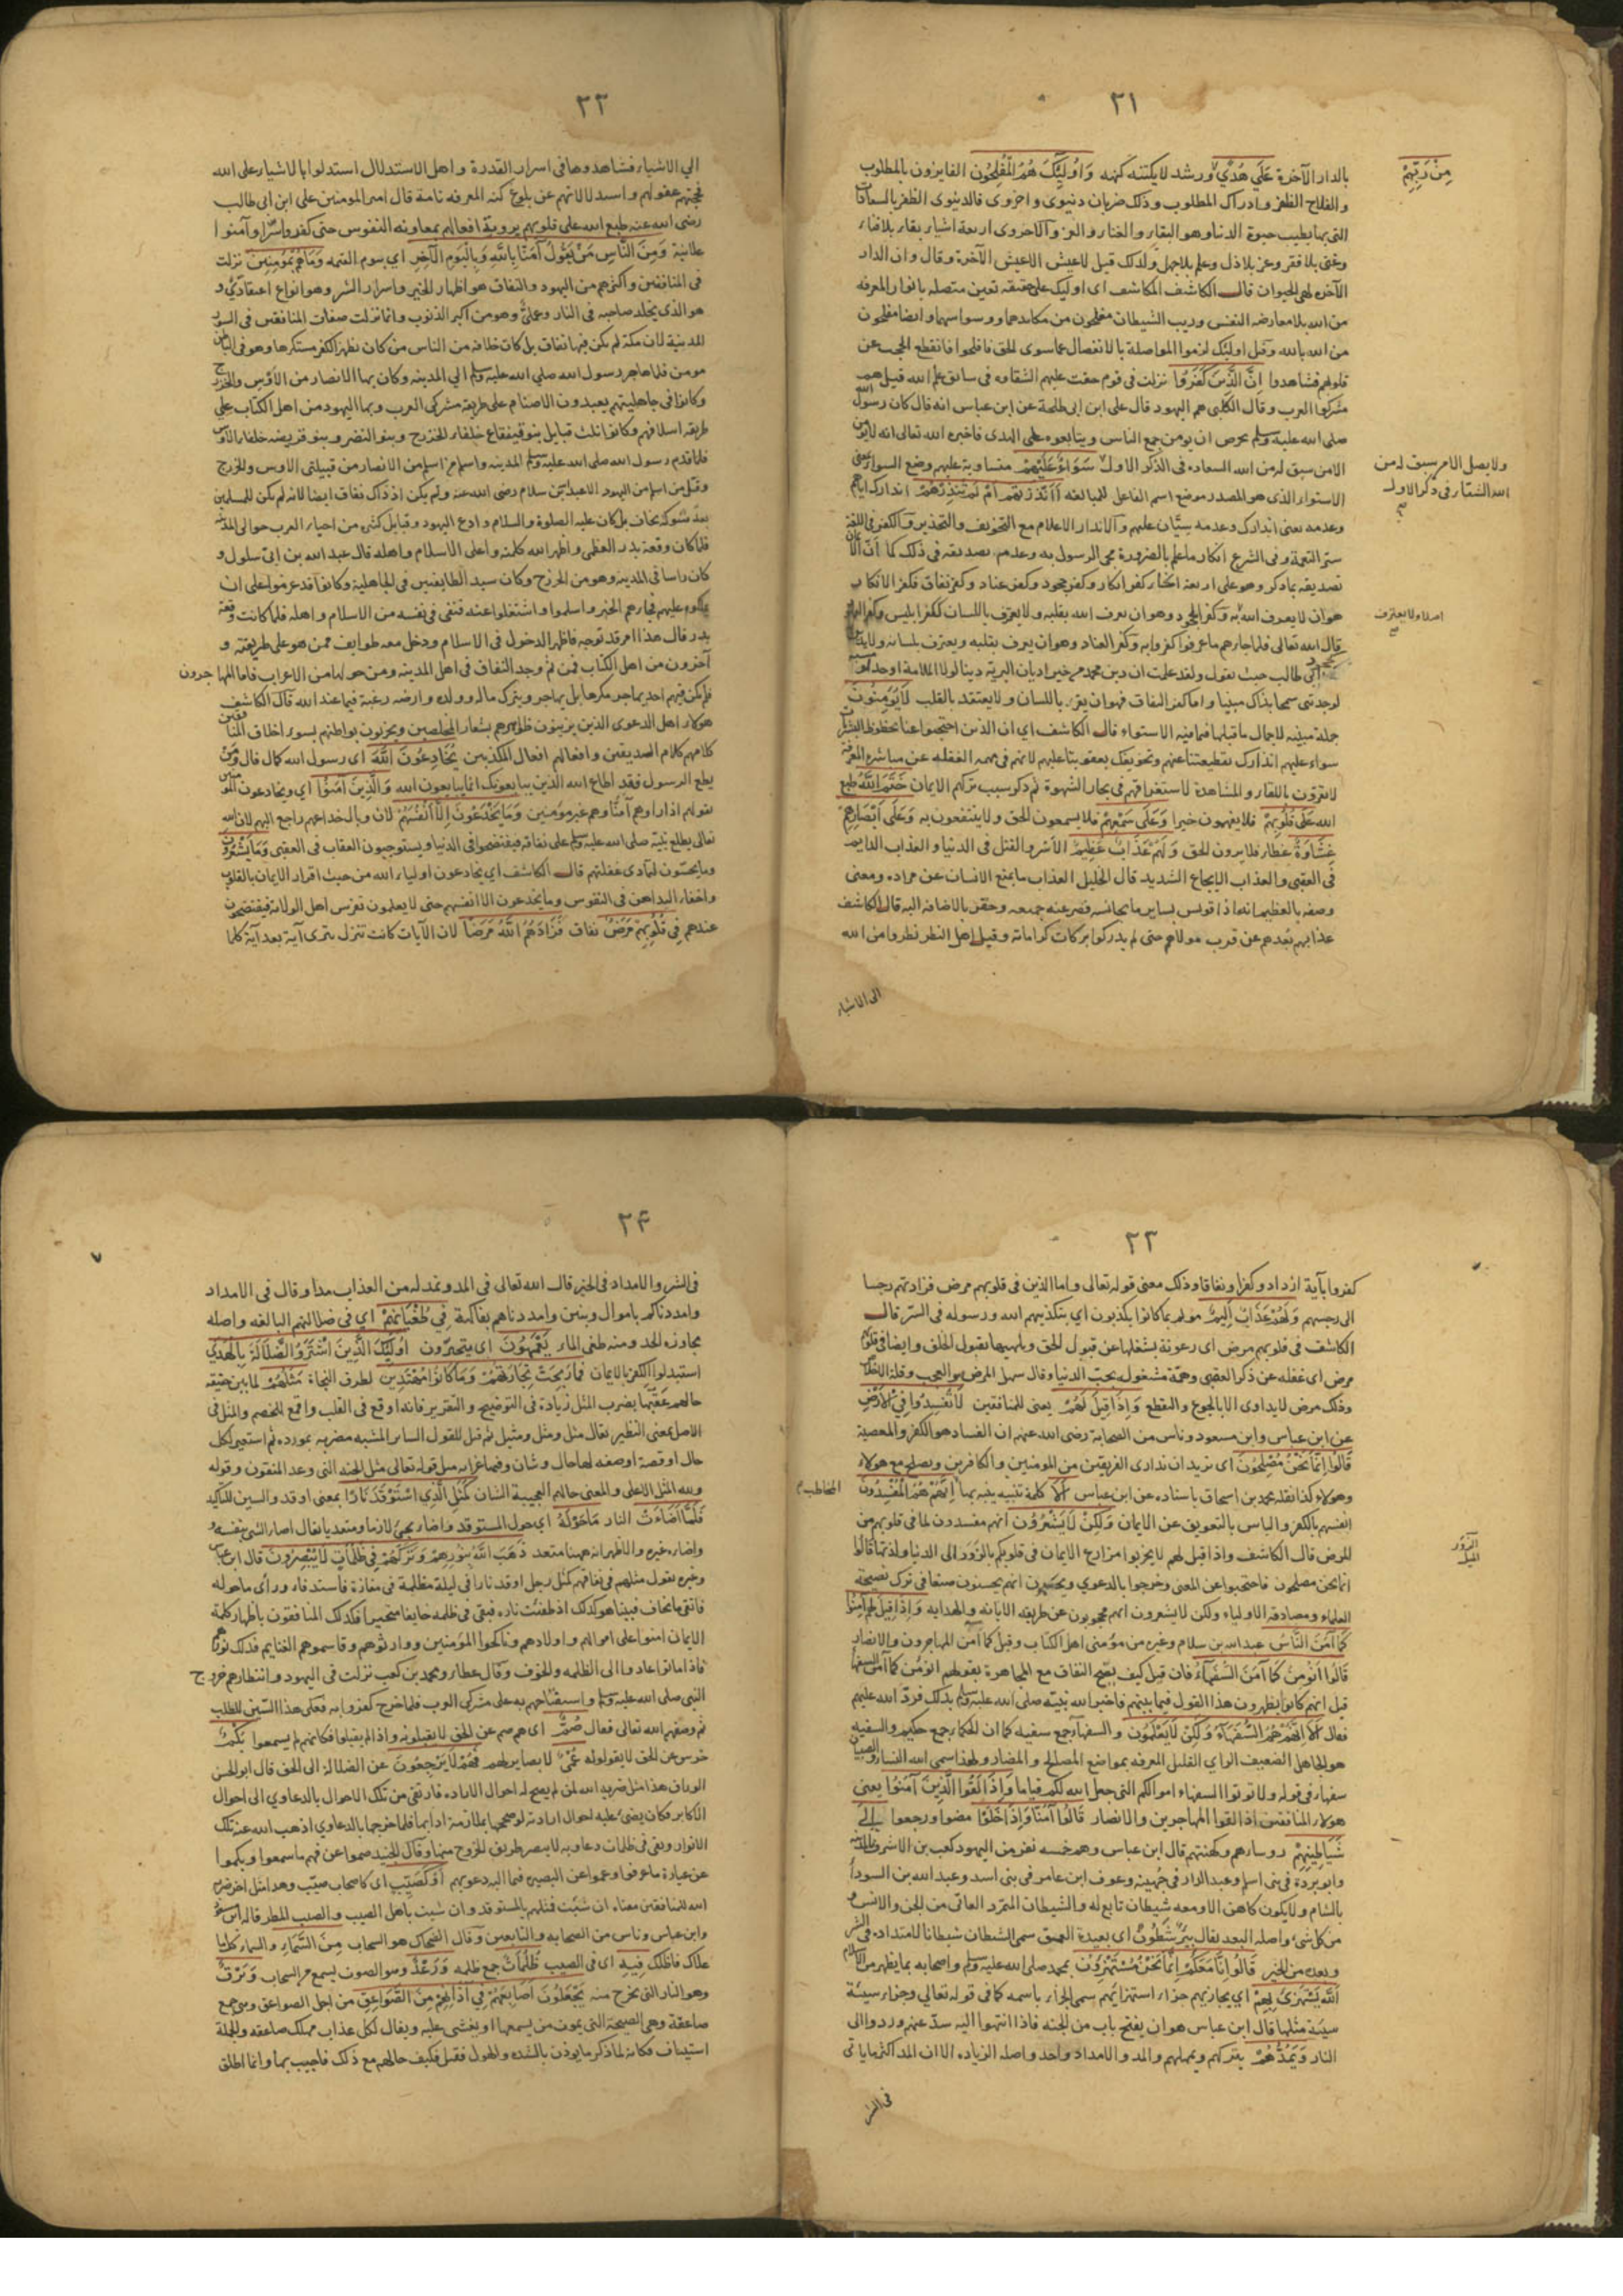 ٢١
بالدار الآخرة عَلَى هُدًى ورشد لا يكتنه كنهه وَأُولَئِكَ هُمُ الْمُفْلِحُونَ الفايزون بالمطلوب
مِنْ رَبِّهِمْ
والفلاح الظفر وادراك المطلوب وذلك ضربان دنيوى واخروى فالدنيوى الظفر بالسعادات
التى بها يطيب حيوة الدنيا وهو البقاء والغنا والعز والاخروى اربعة اشياء بقاء بلا فناء
وغنى بلا فقر وعز بلا ذل وعلم بلا جهل ولذلك قيل لا عيش الا عيش الآخرة وقال وان الدار
الآخرة لهى الحيوان قال الكاشف المكاشف اى اوليك على حقيقة تعين متصله بانوار المعرفه
من الله بلا معارضه النفس وريب الشيطان مفلحون من مكايدهما ووسواسهما وايضا مفلحون
من الله بالله وقيل اوليك لزموا المواصلة بالانفصال عما سوى الحق فافلحوا فانقطع الحجب عن
قلوبهم فشاهدوا إِنَّ الَّذِينَ كَفَرُوا نزلت فى قوم حقت عليهم الشقاوه فى سابق علم الله قيل هم
مشركوا العرب وقال الكلبى هم اليهود قال على ابن ابى طلحة عن ابن عباس انه قال كان رسول الله
صلى الله عليه وسلم يحرص ان يومن جمع الناس ويتابعوه على الهدى فاخبره الله تعالى انه لا يومن
الا من سبق له من الله السعاده فى الذكر الاول سَوَاءٌ عَلَيْهِمْ متساوية عليهم وضع السواء بمعنى
ولا يضل الا من سبق له من
الله الشقاء فى ذكر الاول
الاستواء الذى هو المصدر موضع اسم الفاعل للمبالغه أَأَنْذَرْتَهُمْ أَمْ لَمْ تُنْذِرْهُمْ انذارك اياهم
وعدمه يعنى انذارك وعدمه سِيّان عليهم والانذار الاعلام مع التخويف والتحذير والكفر فى اللغة
ستر النعمة وفى الشرع انكار ما علم بالضرورة مجى الرسول به وعدم تصديقه فى ذلك كما ان الايمان
تصديقه بما ذكر وهو على اربعة انحاء كفر انكار وكفر جحود وكفر عناد وكفر نفاق فكفر الانكار
هو ان لا يعرف الله به وكفر الجحود هو ان يعرف الله بقلبه ولا يعترف باللسان ككفر ابليس وكفر اليهود
اصلا ولا يعترف
قال الله تعالى فلما جاءهم ما عرفوا كفروا به وكفر العناد وهو ان يعرف بقلبه ويعترف بلسانه ولا يدين
ابى طالب حيث يقول ولقد علمت ان دين محمد من خير اديان البرية دينا لولا الملامة او حذار مسبة
لوجدتنى سمحا بذاك مبينا واما كفر النفاق فهو ان يقر باللسان ولا يعتقد بالقلب لَا يُؤْمِنُونَ
جملة مبينه لاجمال ما قبلها فيما فيه الاستواء قال الكاشف اى ان الذين احتجبوا عنا بحظوظ البشرية
سواء عليهم انذارك بقطيعتنا عنهم وتخويفك بعقوبتنا عليهم لانهم فى مهمه الغفله عن مباشره المعرفة
لا يقرون باللقاء والمشاهدة لاستغراقهم فى بحار الشهوة ثم ذكر سبب تركهم الايمان خَتَمَ اللَّهُ طبع
الله عَلَى قُلُوبِهِمْ فلا يفهمون خيرا وَعَلَى سَمْعِهِمْ فلا يسمعون الحق ولا ينتفعون به وَعَلَى أَبْصَارِهِمْ
غِشَاوَةٌ غطاء فلا يرون الحق وَلَهُمْ عَذَابٌ عَظِيمٌ الاسر والقتل فى الدنيا والعذاب الدايم
فى العقبى والعذاب الايجاع الشديد قال الخليل العذاب ما يمنع الانسان عن مراده ومعنى
وصفه بالعظيم انه اذا قويس بساير ما يجانسه قصر عنه جميعه وحقر بالاضافه اليه قال الكاشف
عذابهم بُعدهم عن قرب مولاهم حتى لم يدركوا بركات كراماته وقيل اهل النظر نظروا من الله
الى الاشياء
٢٢
الى الاشياء فشاهدوها فى اسرار القدرة واهل الاستدلال استدلوا بالاشياء على الله
فحجبتهم عقولهم واستدلالاتهم عن بلوغ كنه المعرفه تامة قال امير المومنين على ابن ابى طالب
رضى الله عنه طبع الله على قلوبهم بروية افعالهم بمعاونه النفوس حتى كفروا سرا وآمنوا
علانية وَمِنَ النَّاسِ مَنْ يَقُولُ آمَنَّا بِاللَّهِ وَبِالْيَوْمِ الْآخِرِ اى بيوم القيمه وَمَا هُمْ بِمُؤْمِنِينَ نزلت
فى المنافقين واكثرهم من اليهود والنفاق هو اظهار الخير واسرار الشر وهو انواع اعتقادى و
هو الذى يخلد صاحبه فى النار وعملى وهو من اكبر الذنوب وانما نزلت صفات المنافقين فى السور
المدينية لان مكة لم يكن فيها نفاق بل كان خلافه من الناس من كان يظهر الكفر مستكرها وهو فى الباطن
مومن فلما هاجر رسول الله صلى الله عليه وسلم الى المدينه وكان بها الانصار من الاوس والخزرج
وكانوا فى جاهليتهم يعبدون الاصنام على طريقة مشركى العرب وبها اليهود من اهل الكتاب على
طريقه اسلافهم وكانوا ثلث قبايل بنو قينقاع حلفاء الخزرج وبنو النضر وبنو قريضه حلفاء الاوس
فلما قدم رسول الله صلى الله عليه وسلم المدينه واسلم من اسلم من الانصار من قبيلتى الاوس والخزرج
وقل من اسلم من اليهود الا عبد الله بن سلام رضى الله عنه ولم يكن اذ ذاك نفاق ايضا لانه لم يكن للمسلمين
بعد شوكة تخاف بل كان عليه الصلوة والسلام وادع اليهود وقبايل كثيره من احياء العرب حوالى المدينة
فلما كان وقعة بدر العظمى واظهر الله كلمته واعلى الاسلام واهله قال عبد الله بن ابى سلول و
كان راسا فى المدينه وهو من الخزرج وكان سيد الطايفتين فى الجاهلية وكانوا قد عزموا على ان
يملكوه عليهم فجاءهم الخير واسلموا واشتغلوا عنه فبقى فى نفسه من الاسلام واهله فلما كانت وقعة
بدر قال هذا امر قد توجه فاظهر الدخول فى الاسلام ودخل معه طوايف ممن هو على طريقته و
آخرون من اهل الكتاب فمن ثم وجد النفاق فى اهل المدينه ومن حولها من الاعراب فاما المهاجرون
فلم يكن فيهم احد يهاجر مكرها بل يهاجر ويترك ماله وولده وارضه رغبة فيما عند الله قال الكاشف
هولاء اهل الدعوى الذين يزينون ظواهرهم بشعار المخلصين ويخربون بواطنهم بسوء اخلاق المنافقين
كلامهم كلام الصديقين وافعالهم افعال المكذبين يُخَادِعُونَ اللَّهَ اى رسول الله كما قال ومن
يطع الرسول فقد اطاع الله الذين يبايعونك انما يبايعون الله وَالَّذِينَ آمَنُوا اى ويخادعون المؤمنين
بقولهم اذا راوهم آمنا وهم غير مومنين وَمَا يَخْدَعُونَ إِلَّا أَنْفُسَهُمْ لان وبال خداعهم راجع اليهم لان الله
تعالى يطلع نبيه صلى الله عليه وسلم على نفاقهم فيفتضحوا فى الدنيا ويستوجبون العقاب فى العقبى وَمَا يَشْعُرُونَ
وما يحسّون لتمادى غفلتهم قال الكاشف اى يخادعون اولياء الله من حيث اقرار الايمان بالقلوب
واخفاء المداهن فى النفوس وما يخدعون الا انفسهم حتى لا يعلمون تفرس اهل الولاية فيفتضحون
عندهم فِي قُلُوبِهِمْ مَرَضٌ نفاق فَزَادَهُمُ اللَّهُ مَرَضًا لان الآيات كانت تنزل تترى آية بعد آية كلما
٢٣
كفروا بآية ازدادوا كفرا ونفاقا وذلك معنى قوله تعالى واما الذين فى قلوبهم مرض فزادتهم رجسا
الى رجسهم وَلَهُمْ عَذَابٌ أَلِيمٌ مولم بما كانوا يكذبون اى بتكذيبهم الله ورسوله فى السر قال
الكاشف فى قلوبهم مرض اى رعونة يشغلها عن قبول الحق ويلهيها بقبول الخلق وايضا فى قلوبهم
مرض اى غفله عن ذكر العقبى وهمّة مشغوله بحب الدنيا وقال سهل المرض هو العجب وقلة الاخلاص
وذلك مرض لا يداوى الا بالجوع والتقطع وَإِذَا قِيلَ لَهُمْ يعنى للمنافقين لَا تُفْسِدُوا فِي الْأَرْضِ
عن ابن عباس وابن مسعود وناس من الصحابة رضى الله عنهم ان الفساد هو الكفر والمعصية
قَالُوا إِنَّمَا نَحْنُ مُصْلِحُونَ اى نريد ان ندارى الفريقين من المومنين والكافرين ونصلح مع هولاء
وهولاء كذا نقله محمد بن اسحاق باسناده عن ابن عباس أَلَا كلمة تنبيه ينبه بها إِنَّهُمْ هُمُ الْمُفْسِدُونَ
المخاطب
انفسهم بالكفر والناس بالتعويق عن الايمان وَلَكِنْ لَا يَشْعُرُونَ انهم مفسدون لما فى قلوبهم من
المرض قال الكاشف واذا قيل لهم لا تخربوا مزارع الايمان فى قلوبكم بالزَوَر الى الدنيا ولذتها قالوا
الزَوَر
الميل
انما نحن مصلحون فاحتجبوا عن المعنى وخرجوا بالدعوى ويحسبون انهم يحسنون صنعا فى ترك نصيحة
العلماء ومصادقه الاولياء ولكن لا يشعرون انهم محجوبون عن طريقه الانابه والهدايه وَإِذَا قِيلَ لَهُمْ آمِنُوا
كَمَا آمَنَ النَّاسُ عبد الله بن سلام وغيره من مؤمنى اهل الكتاب وقيل كما آمن المهاجرون والانصار
قَالُوا أَنُؤْمِنُ كَمَا آمَنَ السُّفَهَاءُ فان قيل كيف يصح النفاق مع المجاهرة بقولهم انؤمن كما آمن السفهاء
قيل انهم كانوا يظهرون هذا القول فيما بينهم فاخبر الله نبيه صلى الله عليه وسلم بذلك فردّ الله عليهم
فقال أَلَا إِنَّهُمْ هُمُ السُّفَهَاءُ وَلَكِنْ لَا يَعْلَمُونَ والسفهاء جمع سفيه كما ان الحكماء جمع حكيم والسفيه
هو الجاهل الضعيف الراى القليل المعرفه بمواضع المصالح والمضار ولهذا سمى الله النساء والصبيان
سفهاء فى قوله ولا توتوا السفهاء اموالكم التى جعل الله لكم قياما وَإِذَا لَقُوا الَّذِينَ آمَنُوا يعنى
هولاء المنافقين اذا لقوا المهاجرين والانصار قَالُوا آمَنَّا وَإِذَا خَلَوْا مضوا ورجعوا إِلَى
شَيَاطِينِهِمْ روسايهم وكهنتهم قال ابن عباس وهم خمسه نفر من اليهود كعب بن الاشرف بالمدينه
وابو بردة فى بنى اسلم وعبد الدار فى جهينه وعوف ابن عامر فى بنى اسد وعبد الله بن السوداء
بالشام ولا يكون كاهن الا ومعه شيطان تابع له والشيطان المتمرد العاتى من الجن والانس و
من كل شئ واصله البعد يقال بئر شَطُون اى بعيدة العمق سمى الشيطان شيطانا لامتداده فى الشر
وبعده من الخير قَالُوا إِنَّا مَعَكُمْ إِنَّمَا نَحْنُ مُسْتَهْزِؤُنَ بمحمد صلى الله عليه وسلم واصحابه بما يظهر من الاسلام
اللَّهُ يَسْتَهْزِئُ بِهِمْ اى يجازيهم جزاء استهزائهم سمى الجزاء باسمه كما فى قوله تعالى وجزاء سيئة
سيئة مثلها قال ابن عباس هو ان يفتح باب من الجنه فاذا انتهوا اليه سدّ عنهم وردوا الى
النار وَيَمُدُّهُمْ يتركهم ويمهلهم والمد والامداد واحد واصله الزياده الا ان المد اكثر ما ياتى
فى الشر
٢٤
فى الشر والامداد فى الخير قال الله تعالى فى المد ونمد له من العذاب مدا وقال فى الامداد
وامددناكم باموال وبنين وامددناهم بفاكهة فِي طُغْيَانِهِمْ اى فى ضلالتهم البالغه واصله
مجاوزه الحد ومنه طغى الماء يَعْمَهُونَ اى يتحيرون أُولَئِكَ الَّذِينَ اشْتَرَوُا الضَّلَالَةَ بِالْهُدَى
استبدلوا الكفر بالايمان فَمَا رَبِحَتْ تِجَارَتُهُمْ وَمَا كَانُوا مُهْتَدِينَ لطرق النجاة مَثَلُهُمْ لما بين حقيقه
حالهم عقّبها بضرب المثل زيادة فى التوضيح والتقرير فانه اوقع فى القلب واقمع للخصم والمثل فى
الاصل بمعنى النظير يقال مثل ومثل ومثيل ثم قيل للقول الساير المشبه مضربه بمورده ثم استعير لكل
حال او قصة او صفه لها حال وشان وفيها غرابه مثل قوله تعالى مثل الجنه التى وعد المتقون وقوله
ولله المثل الاعلى والمعنى حالهم العجيبة الشان كَمَثَلِ الَّذِي اسْتَوْقَدَ نَارًا بمعنى اوقد والسين للتاكيد
فَلَمَّا أَضَاءَتْ النار مَا حَوْلَهُ اى حول المستوقد واضاء يجئ لازما ومتعديا يقال اضاء الشئ بنفسه و
واضاءه غيره والاظهر انه ههنا متعد ذَهَبَ اللَّهُ بِنُورِهِمْ وَتَرَكَهُمْ فِي ظُلُمَاتٍ لَا يُبْصِرُونَ قال ابن عباس
وغيره يقول مثلهم فى نفاقهم كمثل رجل اوقد نارا فى ليلة مظلمة فى مفازة فاستدفاء وراى ما حوله
فاتقى مما يخاف فبينا هو كذلك اذ طفئت ناره فبقى فى ظلمه خايفا متحيرا فكذلك المنافقون باظهار كلمة
الايمان امنوا على اموالهم واولادهم وناكحوا المؤمنين ووارثوهم وقاسموهم الغنايم فذلك نورهم
فاذا ماتوا عادوا الى الظلمه والخوف وقال عطاء ومحمد بن كعب نزلت فى اليهود وانتظارهم خروج
النبى صلى الله عليه وسلم واستفتاحهم به على مشركى العرب فلما خرج كفروا به فعلى هذا السين للطلب
ثم وصفهم الله تعالى فقال صُمٌّ اى هم صم عن الحق لا يقبلونه واذا لم يقبلوا فكانهم لم يسمعوا بُكْمٌ
خرس عن الحق لا يقولوله عُمْيٌ لا بصاير لهم فَهُمْ لَا يَرْجِعُونَ عن الضلالة الى الحق قال ابو الحسن
الوراق هذا مثل ضربه الله لمن لم يصح له احوال الاراده فارتقى من تلك الاحوال بالدعاوى الى احوال
الاكابر فكان يضئ عليه احوال ارادته لو صححها بملازمة ادابها فلما خرجها بالدعاوى اذهب الله عنه تلك
الانوار وبقى فى ظلمات دعاويه لا يبصر طريق الخروج منها وقال الجنيد صموا عن فهم ما سمعوا وبكموا
عن عبارة ما عرفوا وعموا عن البصيره فيما اليه دعوبهم أَوْ كَصَيِّبٍ اى كاصحاب صيّب وهذا مثل اخر ضربه
الله للمنافقين معناه ان شئت فمثلهم بالمستوقد وان شئت باهل الصيب والصيب المطر قاله ابن مسعود
وابن عباس وناس من الصحابه والتابعين وقال الضحاك هو السحاب مِنَ السَّمَاءِ والسماء كل ما
علاك فاظلك فِيهِ اى فى الصيب ظُلُمَاتٌ جمع ظلمه وَرَعْدٌ وهو الصوت يسمع من السحاب وَبَرْقٌ
وهو النار التى تخرج منه يَجْعَلُونَ أَصَابِعَهُمْ فِي آذَانِهِمْ مِنَ الصَّوَاعِقِ من اجل الصواعق وهى جمع
صاعقة وهى الصيحة التى يموت من يسمعها او يغشى عليه ويقال لكل عذاب مهلك صاعقه والجملة
استيناف فكانه لما ذكر ما يوذن بالشده والهول فقيل فكيف حالهم مع ذلك فاجيب بها وانما اطلق